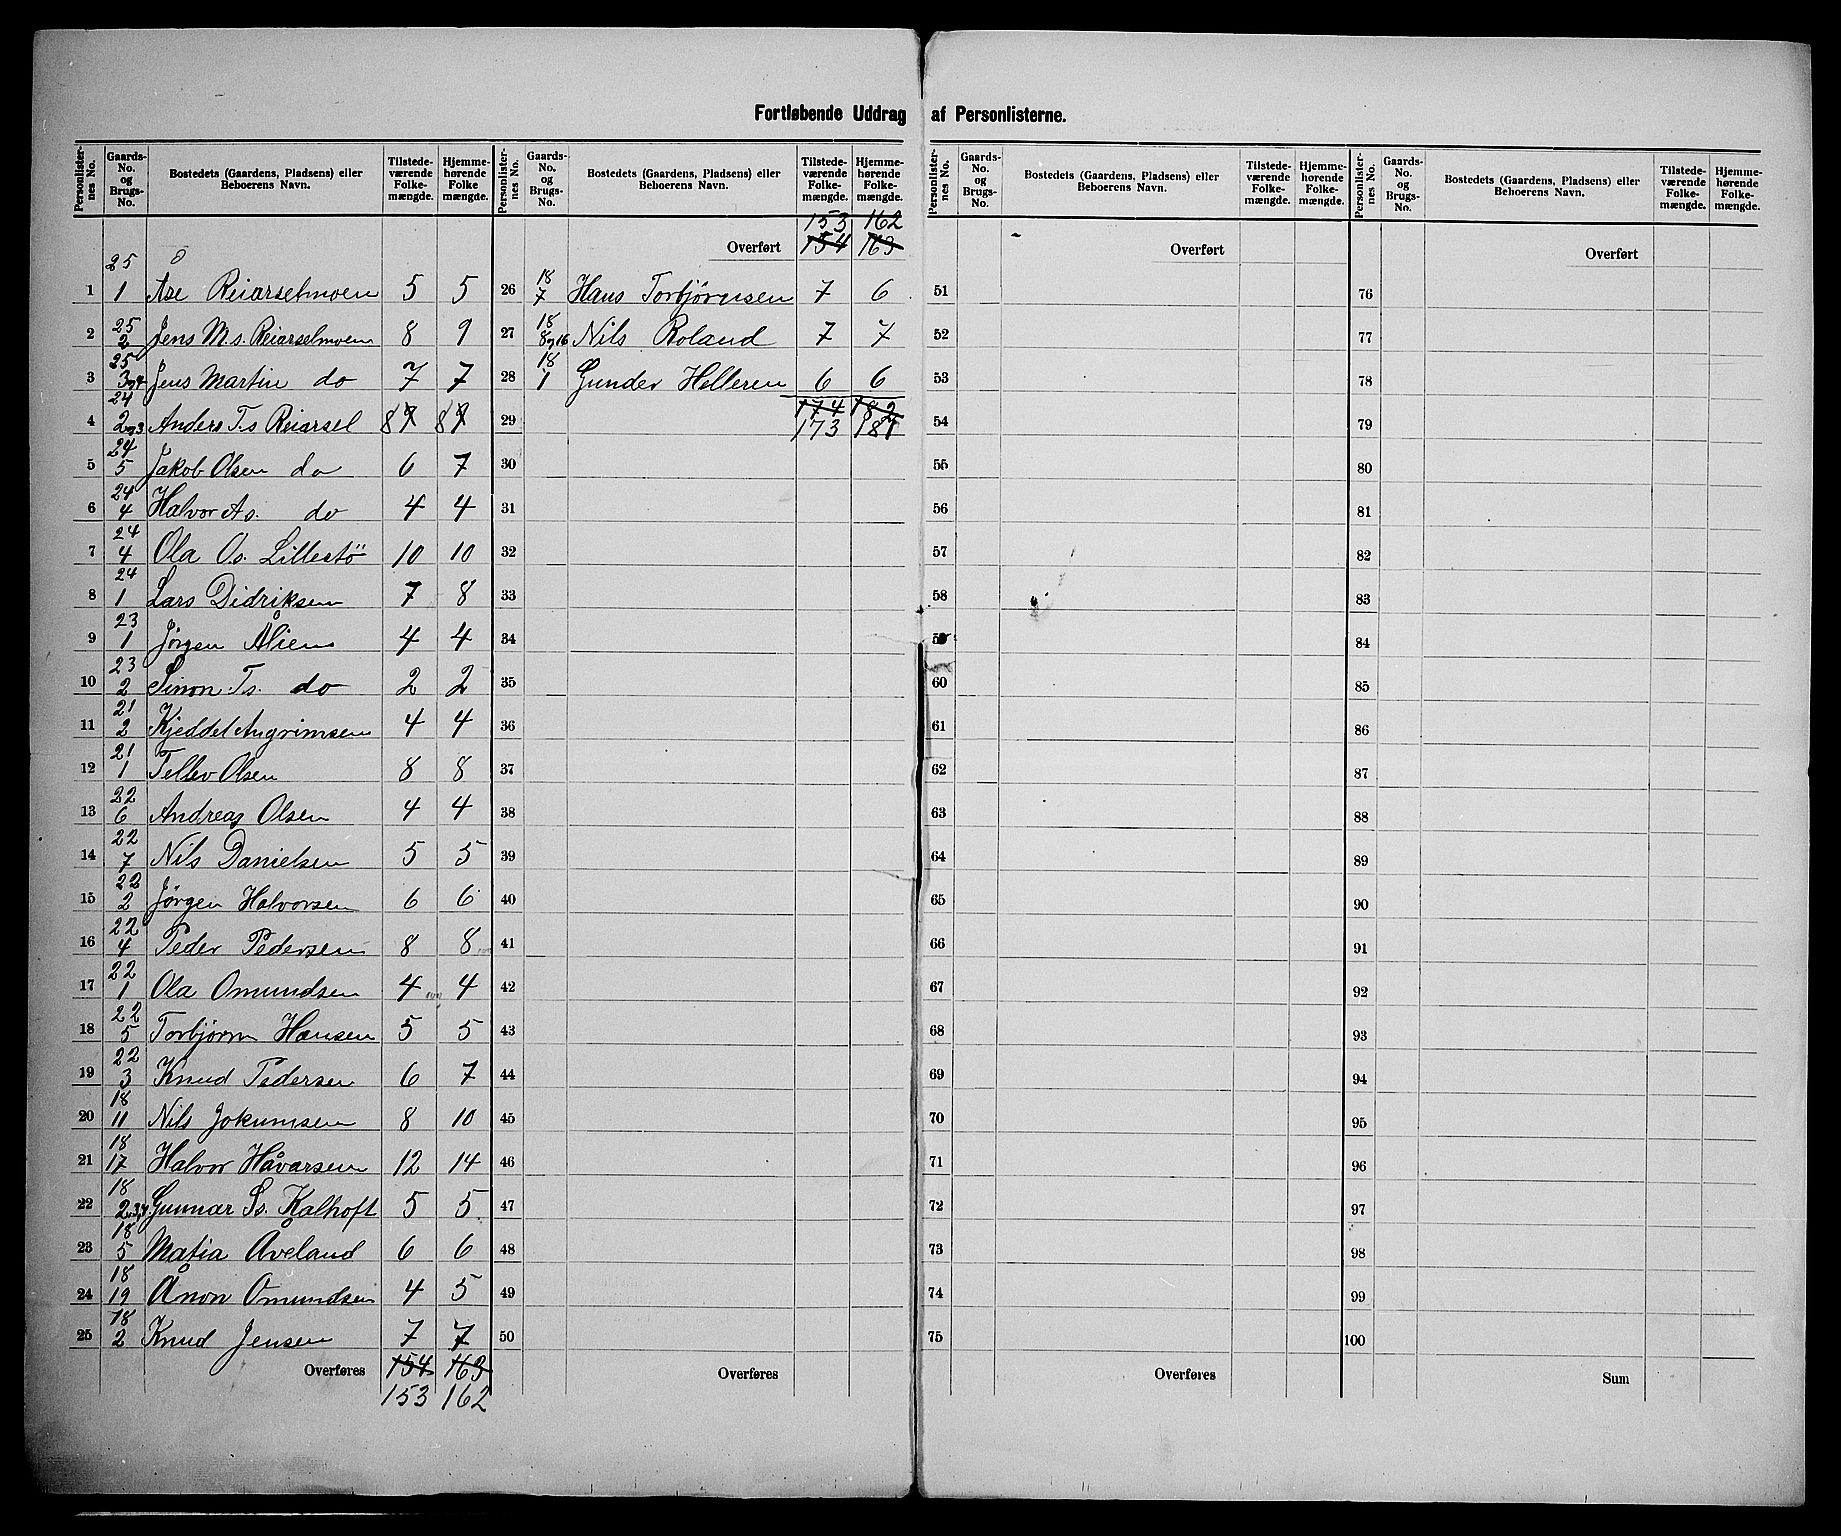 Fortløbende Uddrag af Personlisterne.
Personlister-nes No. Gaards-No. og Brugs-No. Bostedets (Gaardens, Pladsens) eller Beboerens Navn. Tilstede-værende Folke-mængde. Hjemme-hørende Folke mængde.
1 25 1 Åse Reiarselmoen 5 5
2 25 2 Jens M.s. Reiarselmoen 8 9
3 25 3 og 4 Jens Martin do 7 7
4 24 2 og 3 Anders T.s Reiarsel 8 8
5 24 5 Jakob Olsen do 6 7
6 24 4 Halvor As. do 4 4
7 24 4 Ola Os. Lillestö 10 10
8 24 1 Lars Didriksen 7 8
9 23 1 Jörgen Åliens 4 4
10 23 2 Simon Ts. do 2 2
11 21 2 Kjeddel Angrimsen 4 4
12 21 1 Tellev Olsen 8 8
13 22 6 Andreas Olsen 4 4
14 22 7 Nils Danielsen 5 5
15 22 2 Jørgen Halvorsen 6 6
16 22 4 Peder Pedersen 8 8
17 22 1 Ola Omundsen 4 4
18 22 5 Torbjørn Hansen 5 5
19 22 3 Knud Pedersen 6 7
20 18 11 Nils Jokumsen 8 10
21 18 17 Halvor Håvarsen 12 14
22 18 2,3,4 Gunnar Ss. Kalhoft 5 5
23 18 5 Matia Åveland 6 6
24 18 19 Ånon Omundsen 4 5
25 18 2 Knud Jensen 7 7
Overføres 154 163
153 162
Personlister-nes No. Gaards-No. og Brugs-No. Bostedets (Gaardens, Pladsens) eller Beboerens Navn. Tilstede-værende Folke-mængde. Hjemme-hørende Folke-mængde.
153 162
Overført 154 163
26 18 7 Hans Torbjørnsen 7 6
27 18 8 og 16 Nils Roland 7 7
28 18 1 Gunder Helleren 6 6
174 182
29 173 181
30
31
32
33
34
35
36
37
38
39
40
41
42
43
44
45
46
47
48
49
50
Overføres
Personlister-nes No. Gaards-No. og Brugs-No. Bostedets (Gaardens, Pladsens) eller Beboerens Navn. Tilstede-værende Folke-mængde. Hjemme-hørende Folke-mængde.
Overført
51
52
53
54
55
56
57
58
59
60
61
62
63
64
65
66
67
68
69
70
71
72
73
74
75
Overføres
Personlister-nes No. Gaards-No. og Brugs-No. Bostedets (Gaardens, Pladsens) eller Beboerens Navn. Tilstede-værende Folke-mængde. Hjemme-hørende Folke-mængde.
Overført
76
77
78
79
80
81
82
83
84
85
86
87
88
89
90
91
92
93
94
95
96
97
98
99
100
Sum